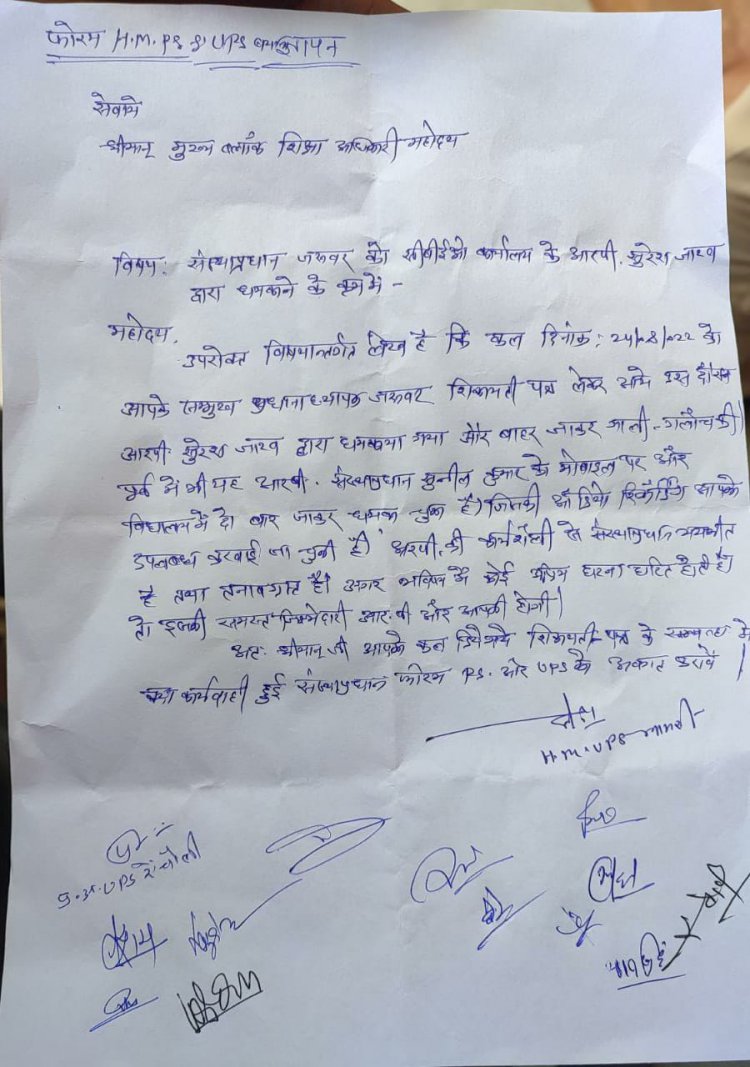 फोरम H.M. PS & UPS
सेवामे
श्रीमान् मुख्य ब्लॉक शिक्षा अधिकारी महोदय
विषय: संस्थाप्रधान जरूवर को सीबीईओ कार्यालय के आरपी. सुरेश जाटव
द्वारा धमकाने के क्रम में -
महोदय,
उपरोक्त विषयान्तर्गत लेख है कि कल दिनांक: 24/08/2022 को
आपके सम्मुख प्रधानाध्यापक जरूवर शिकायती पत्र लेकर आये उस दौरान
आरपी. सुरेश जाटव द्वारा धमकाया गया और बाहर जाकर गाली-गलौच की।
पूर्व में भी यह आरपी. संस्थाप्रधान सुनील कुमार के मोबाइल पर और
विद्यालय में दो बार जाकर धमका चुका है। जिसकी ऑडियो रिकॉर्डिंग आपको
उपलब्ध करवाई जा चुकी है। आरपी. की कार्यशैली से संस्थाप्रधान भयभीत
है तथा तनावग्रस्त है। अगर भविष्य में कोई अप्रिय घटना घटित होती है।
तो इसकी समस्त जिम्मेदारी आर.पी और आपकी होगी।
अतः श्रीमान् जी आपके कल दिये गये शिकायती-पत्र के सम्बन्ध में
क्या कार्यवाही हुई संस्थाप्रधान फोरम P.S. और UPS को अवगत करावें।
H.M. UPS
UPS